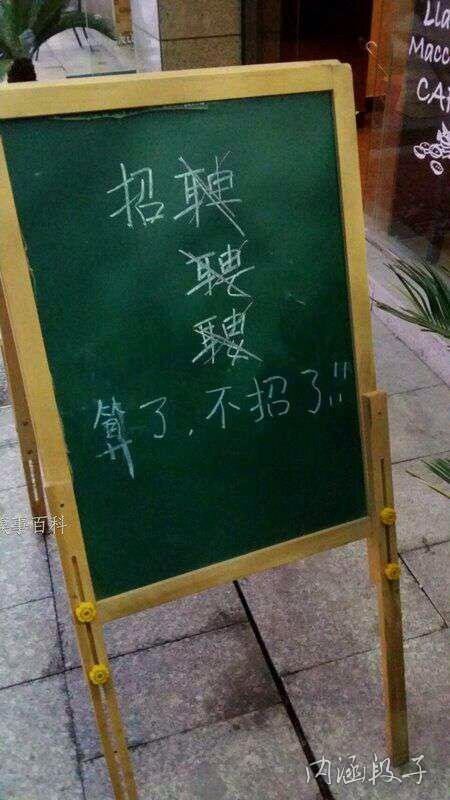 招聘
聘
聘
算了,不招了!!
Lla
Macc
CAF
事百科
内涵段子